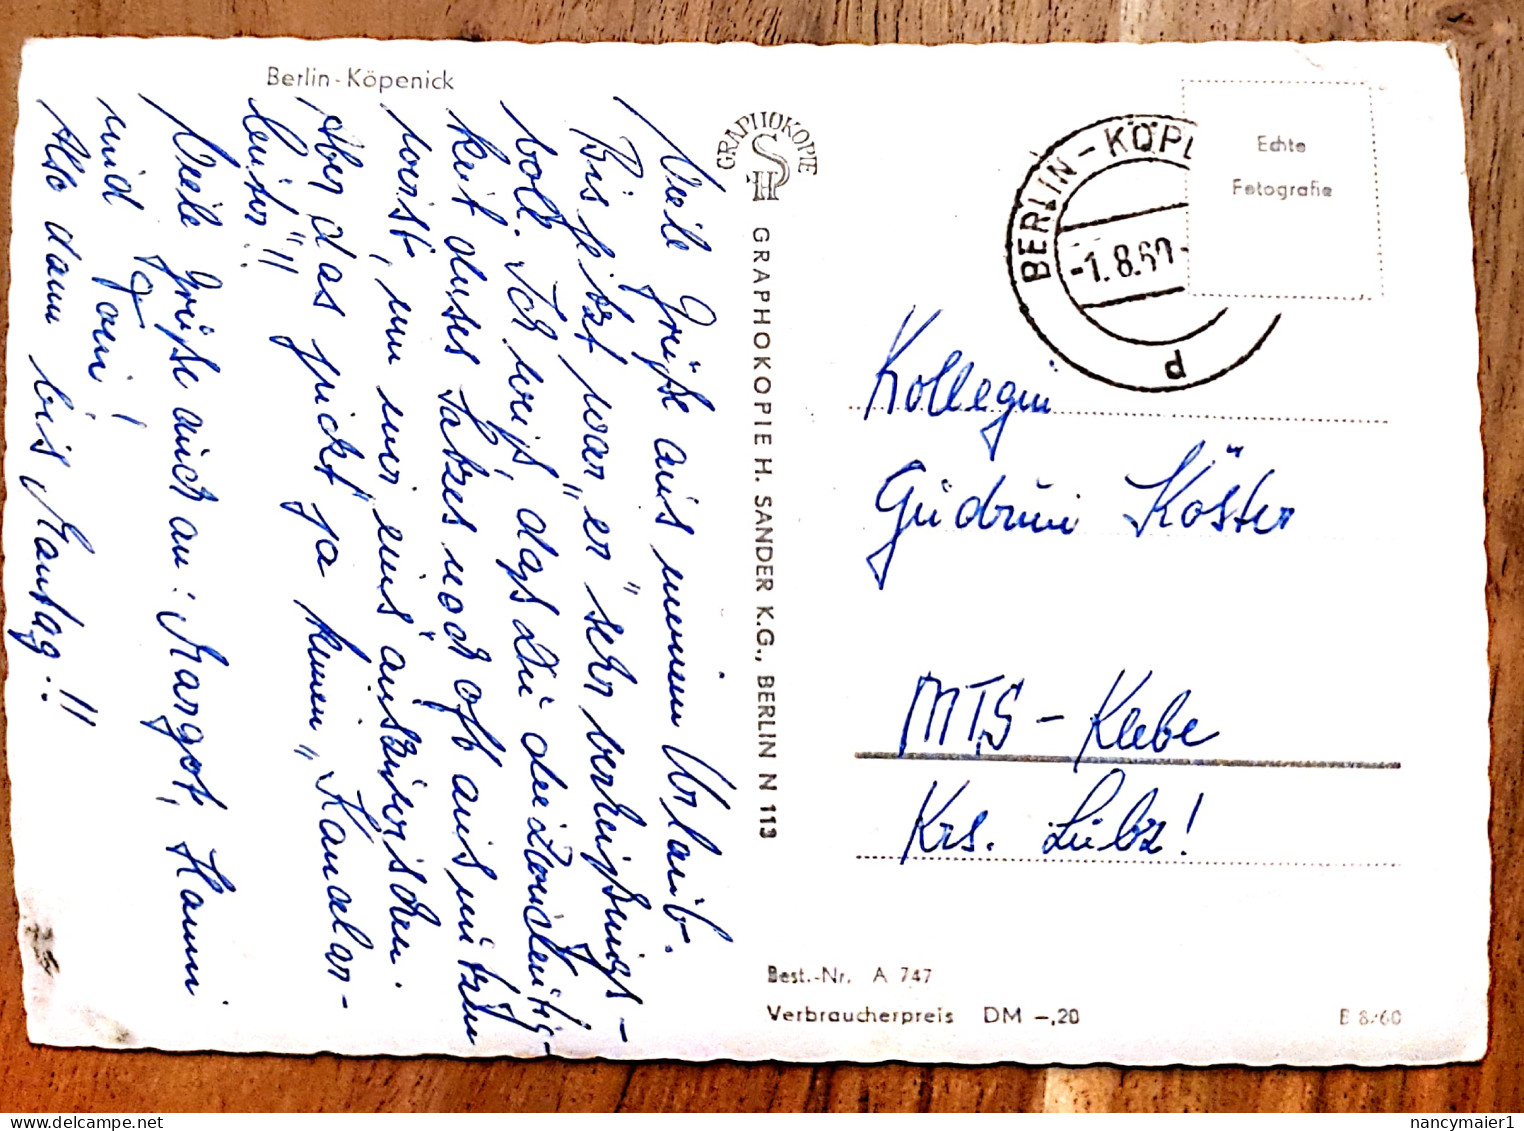 Berlin-Köpenick
Viele Grüße aus meinem Urlaub.
Bis jetzt war „er“ sehr verheißungs-
voll. Ich weiß, dass Du die Zweideutig-
keit dieses Satzes noch oft ausnützen
wirst, um mir „eins“ auszuwischen.
Aber das juckt ja keinen „Kandelar-
Leiter“!!
Viele Grüße auch an: Margot, Hanni
und Toni!
Also dann bis Montag!!
GRAPHOKOPIE
SH
GRAPHOKOPIE H. SANDER K.G., BERLIN N 113
BERLIN-KÖPE
-1.8.60-
d
Echte
Fotografie
Kollegin
Gudrun Köster
MTS - Klebe
Krs. Lübz!
Best.-Nr. A 747
Verbraucherpreis DM -,20
B 8/60
nancymaier1